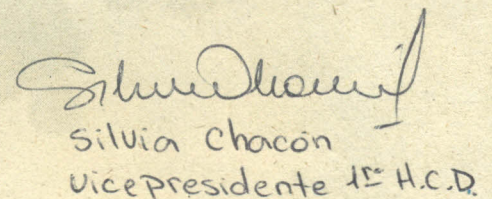 Silvia Chacón
Silvia Chacón
vicepresidente 1ra H.C.D.